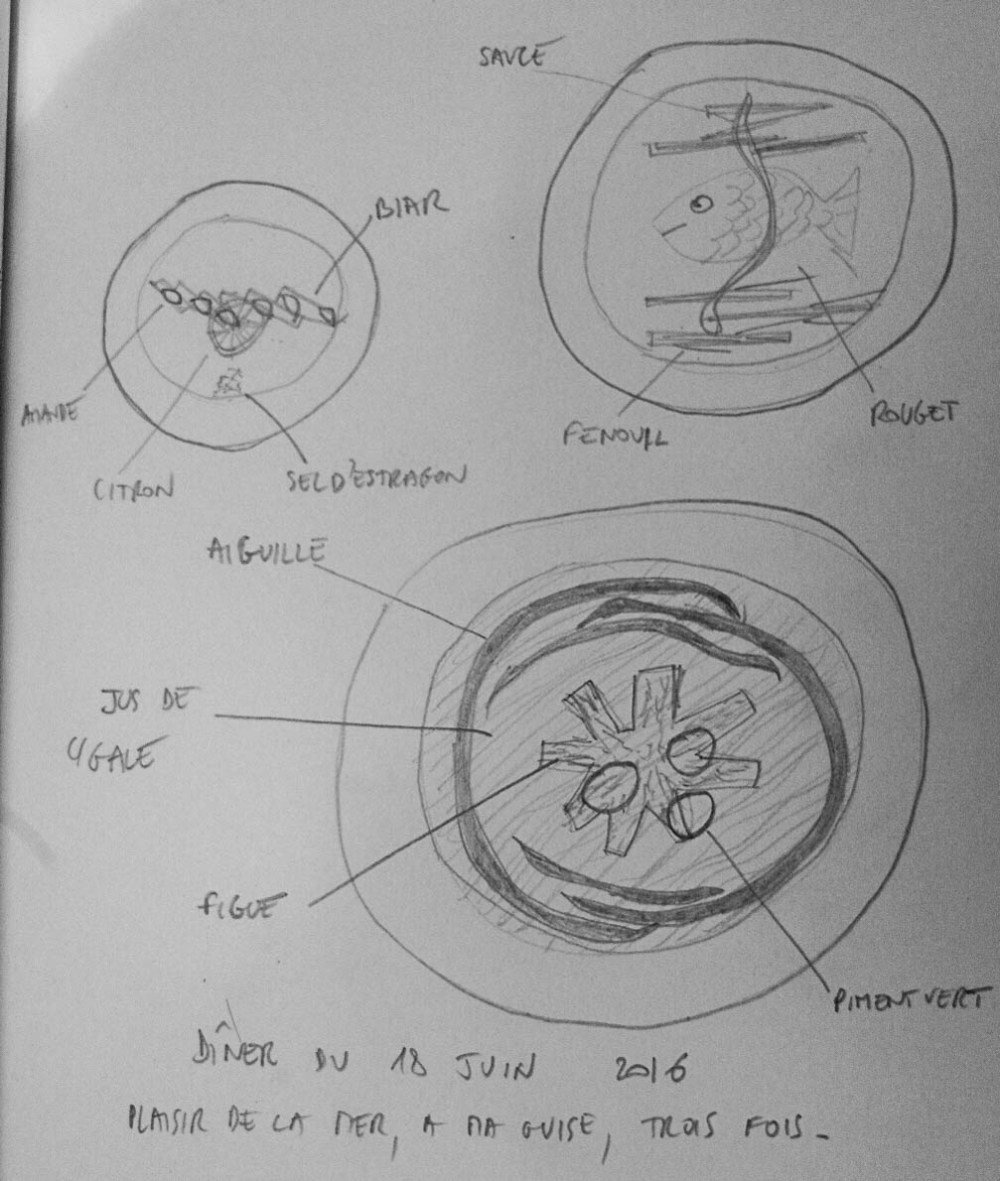 SAUCE
BIAR
AMANDE
CITRON
SEL D'ESTRAGON
FENOUIL
ROUGET
AIGUILLE
JUS DE
CIGALE
FIGUE
PIMENT VERT
DÎNER DU 18 JUIN 2016
PLAISIR DE LA MER, A MA GUISE, TROIS FOIS -